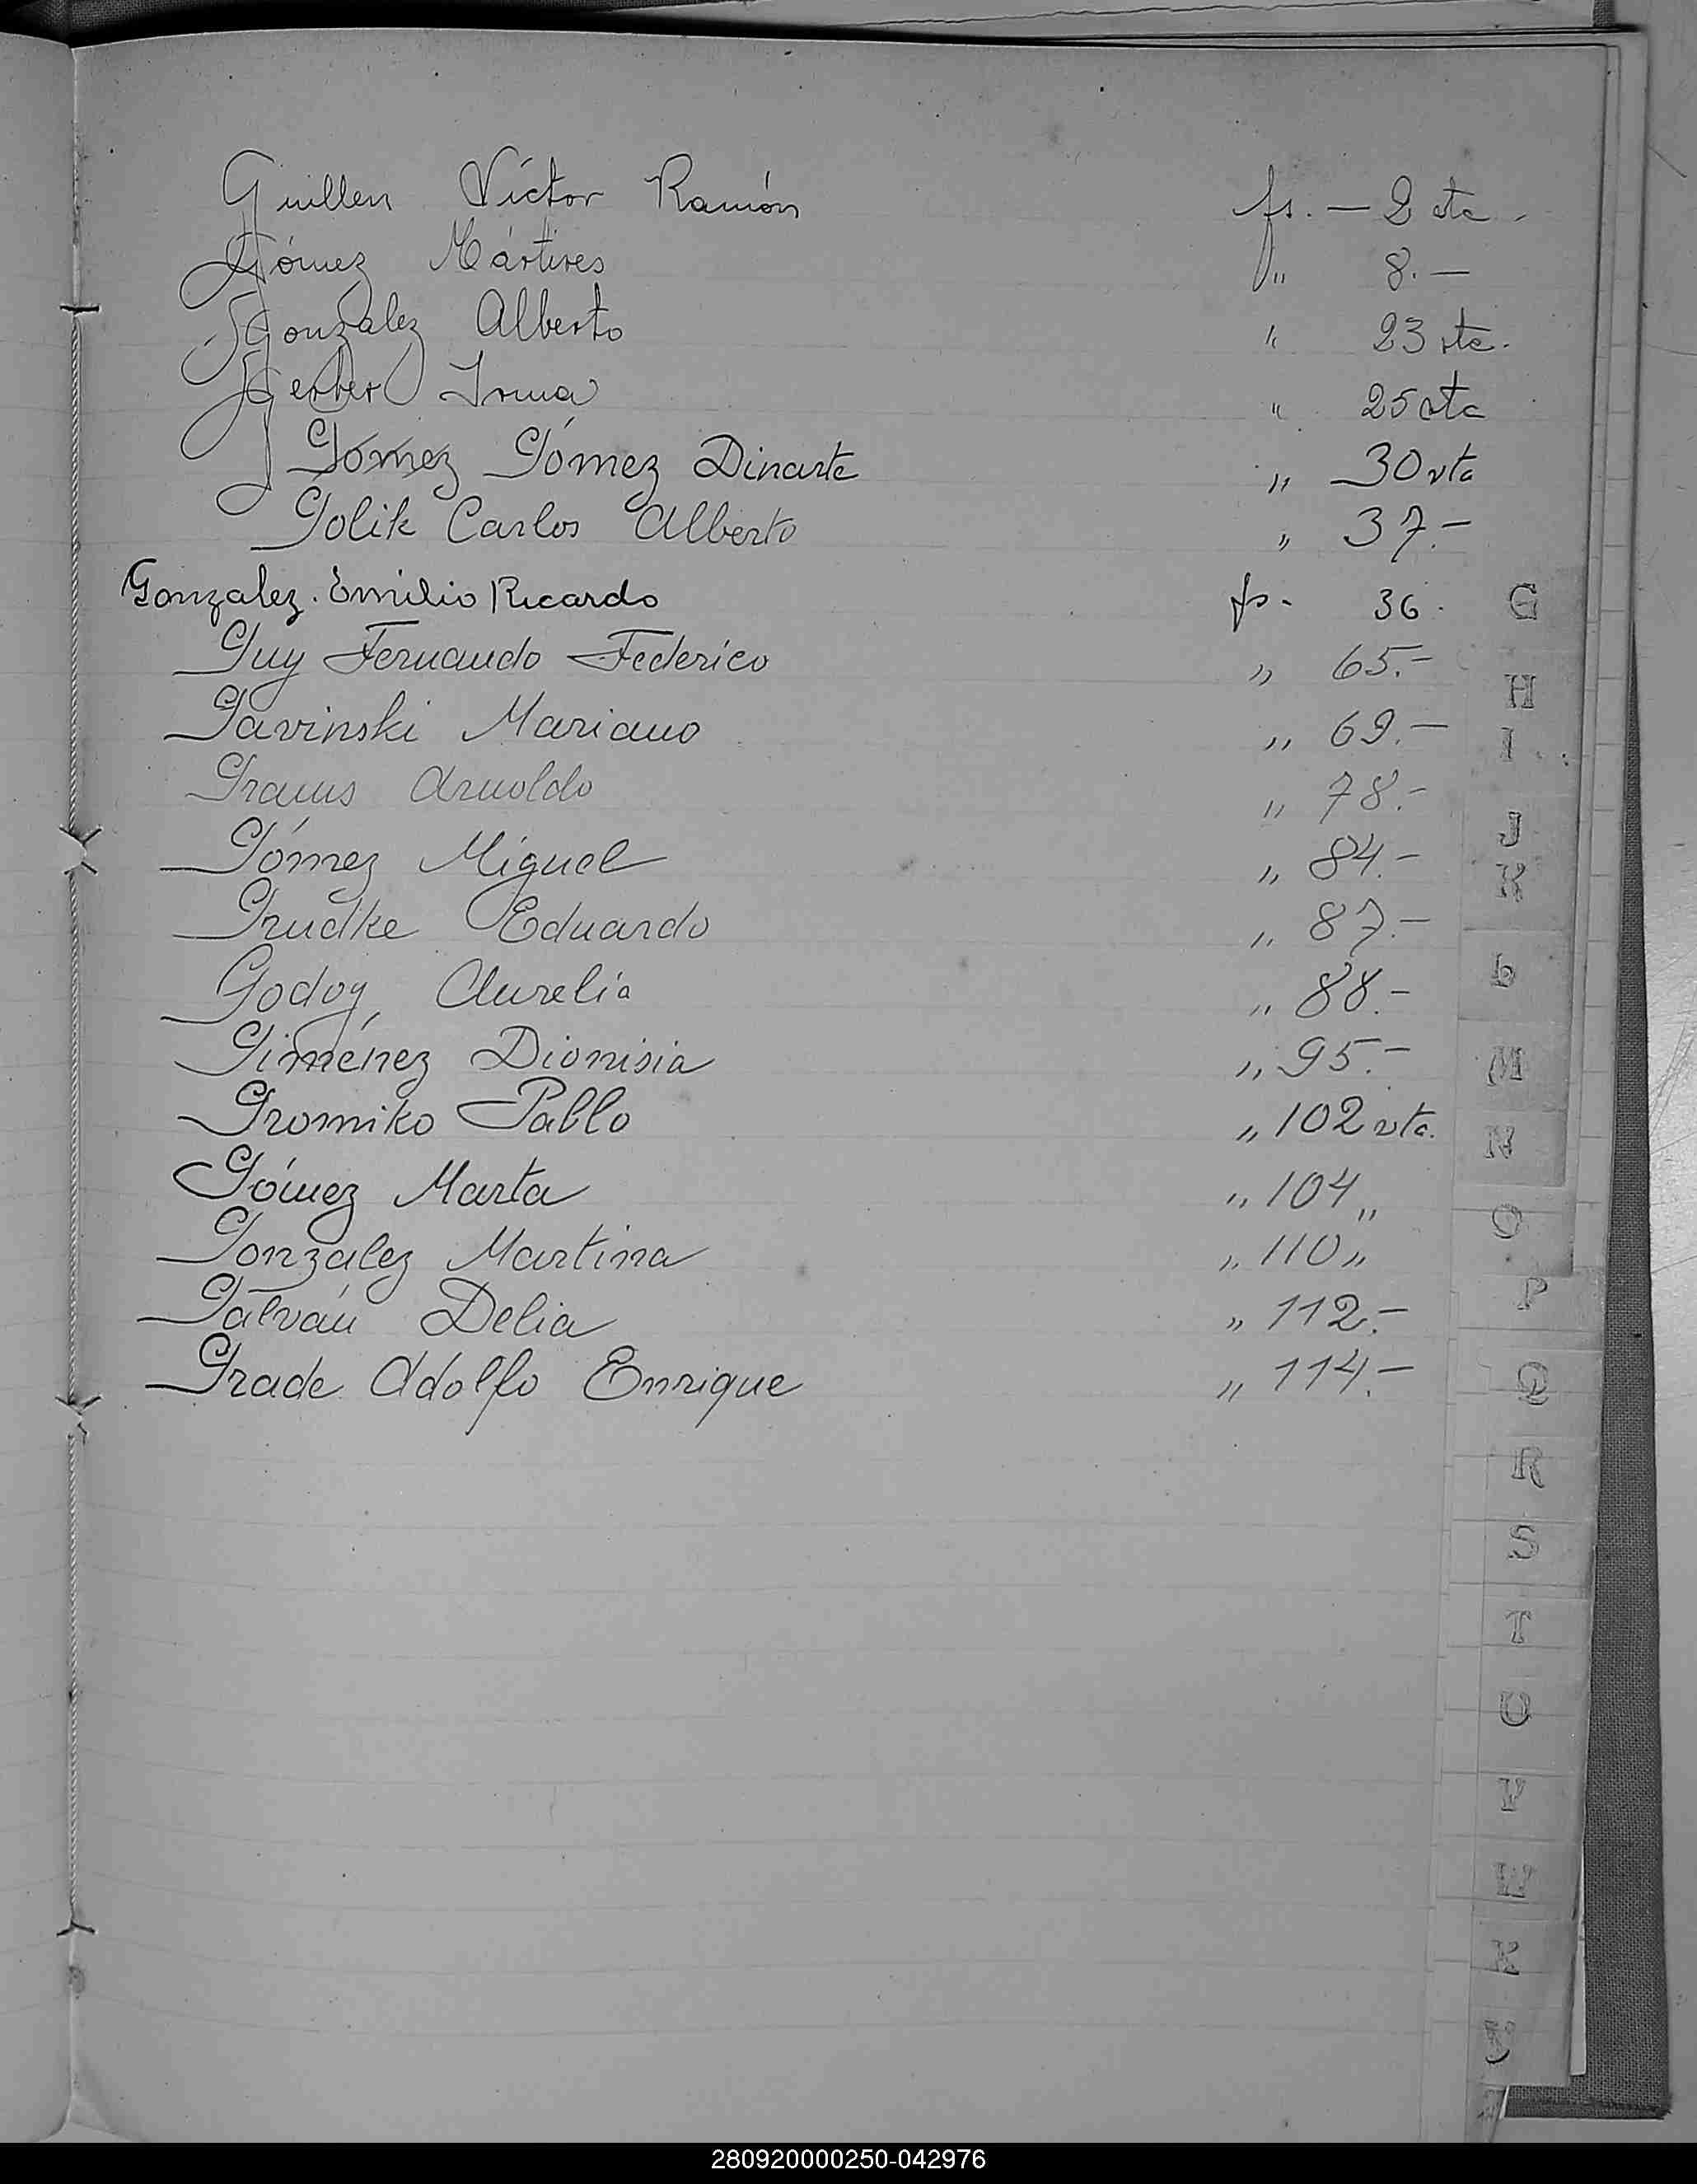 Guillen Víctor Ramón fs. — 2 vta.
Gómez Mártires " 8. —
Gonzalez Alberto " 23 vta.
Gerber Irma " 25 vta
Gómez Gómez Dinarte " 30 vta
Golik Carlos Alberto " 37. —
Gonzalez. Emilio Ricardo fs. 36.
Guy Fernando Federico " 65. —
Gavinski Mariano " 69. —
Arnoldo " 78. —
Gómez Miguel " 84. —
Grudke Eduardo " 87. —
Godoy, Aurelia " 88. —
Giménez Dionisia " 95. —
Gromiko Pablo " 102 vta.
Gómez Marta " 104 "
González Martina " 110 "
Galván Delia " 112. —
Grade Adolfo Enrique " 114. —
G
H
I
J
K
L
M
N
O
P
Q
R
S
T
U
V
W
X
Y
280920000250-042976